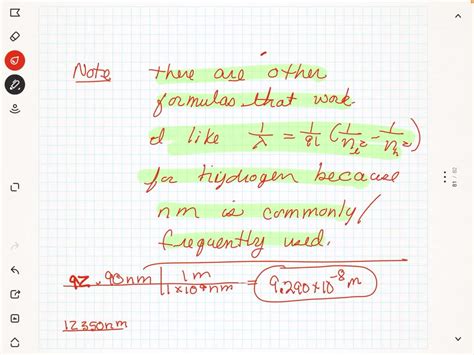 Note there are other
formulas that work.
I like 1/λ = 1/91 (1/n_l² - 1/n_h²)
for hydrogen because
nm is commonly/
frequently used.
92.90nm | 1m / 1×10⁹nm = 9.290×10⁻⁸ m
12350nm